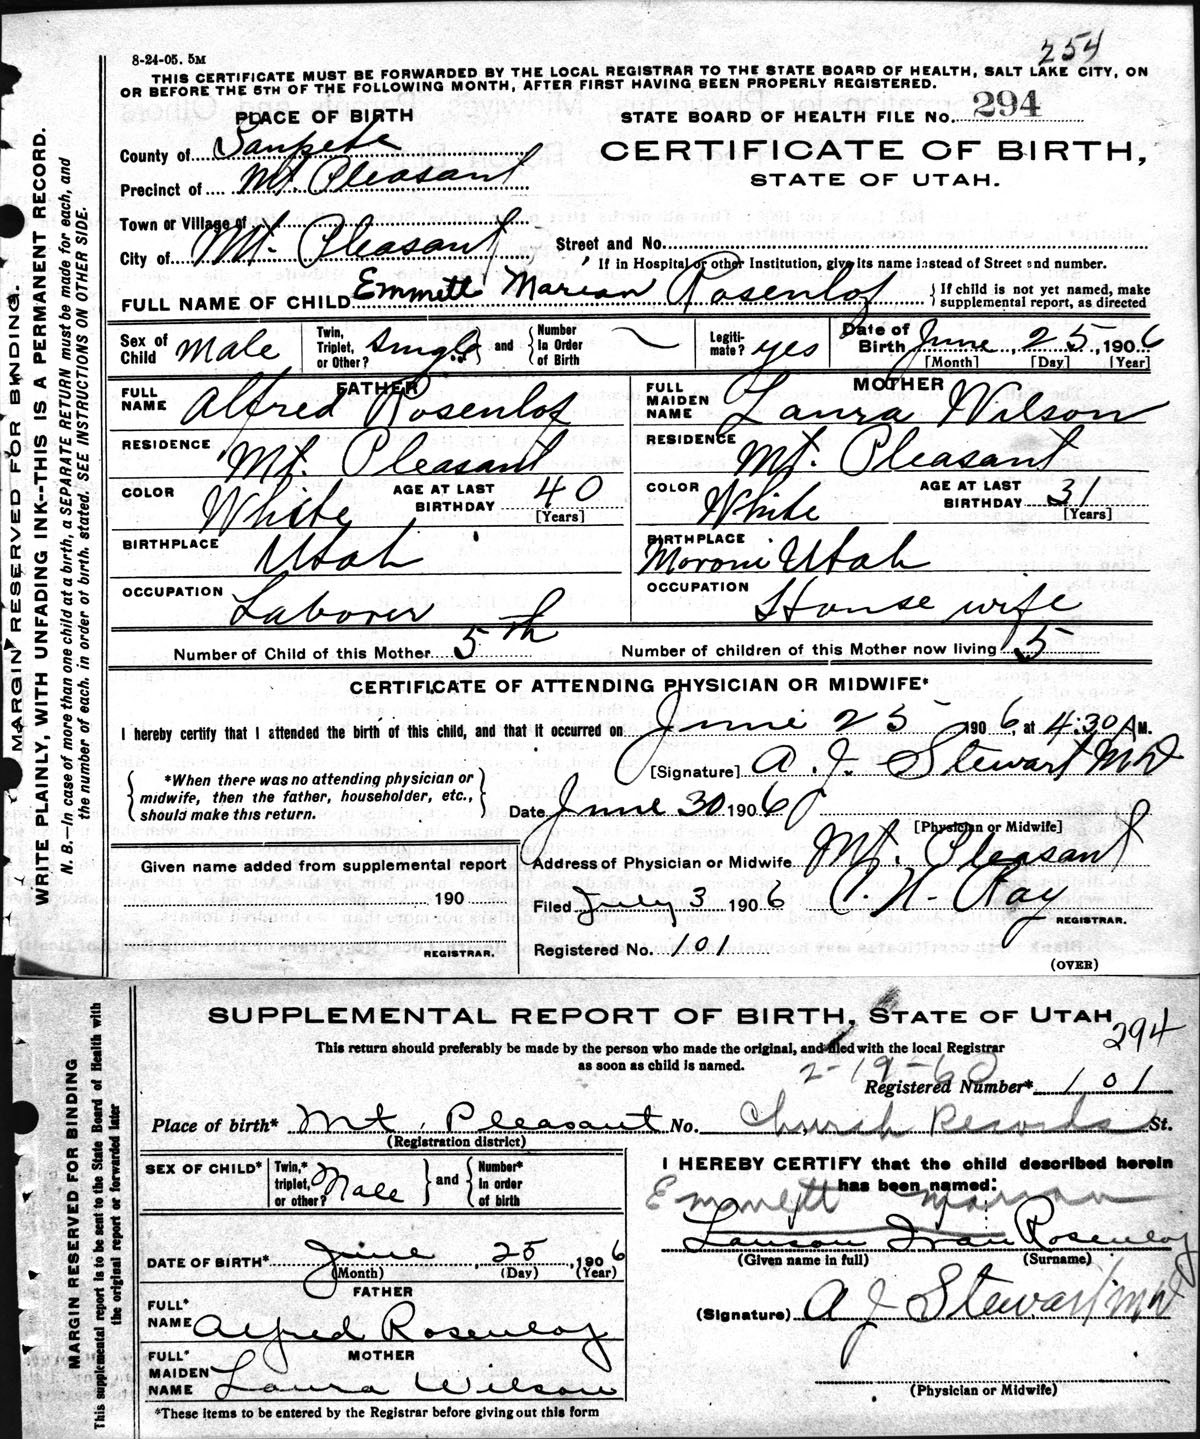 254
8-24-05. 5M
THIS CERTIFICATE MUST BE FORWARDED BY THE LOCAL REGISTRAR TO THE STATE BOARD OF HEALTH, SALT LAKE CITY, ON
OR BEFORE THE 5TH OF THE FOLLOWING MONTH, AFTER FIRST HAVING BEEN PROPERLY REGISTERED.
PLACE OF BIRTH
STATE BOARD OF HEALTH FILE No. 294
County of Sanpete
CERTIFICATE OF BIRTH,
Precinct of Mt Pleasant
STATE OF UTAH.
Town or Village of
City of Mt. Pleasant
Street and No.
If in Hospital or other Institution, give its name instead of Street and number.
FULL NAME OF CHILD Emmett Marian Rosenlof
If child is not yet named, make
supplemental report, as directed
Sex of Child Male
Twin, Triplet, or Other? Single and Number in Order of Birth
Legiti-mate? yes
Date of Birth June 25, 1906
[Month] [Day] [Year]
FATHER
FULL NAME Alfred Rosenlof
RESIDENCE Mt. Pleasant
COLOR White
AGE AT LAST BIRTHDAY 40
[Years]
BIRTHPLACE Utah
OCCUPATION Laborer
MOTHER
FULL MAIDEN NAME Laura Wilson
RESIDENCE Mt. Pleasant
COLOR White
AGE AT LAST BIRTHDAY 31
[Years]
BIRTHPLACE Moroni Utah
OCCUPATION House wife
Number of Child of this Mother 5th
Number of children of this Mother now living 5
CERTIFICATE OF ATTENDING PHYSICIAN OR MIDWIFE*
I hereby certify that I attended the birth of this child, and that it occurred on June 25 1906, at 4:30 A M.
*When there was no attending physician or
midwife, then the father, householder, etc.,
should make this return.
[Signature] A. J. Stewart MD
Date June 30 1906
[Physician or Midwife]
Given name added from supplemental report
190
REGISTRAR.
Address of Physician or Midwife Mt. Pleasant
Filed July 3 1906 C. N. Ray
REGISTRAR.
Registered No. 101
(OVER)
MARGIN RESERVED FOR BINDING.
WRITE PLAINLY, WITH UNFADING INK--THIS IS A PERMANENT RECORD.
N. B.—In case of more than one child at a birth, a SEPARATE RETURN must be made for each, and
the number of each, in order of birth, stated. SEE INSTRUCTIONS ON OTHER SIDE.
SUPPLEMENTAL REPORT OF BIRTH, STATE OF UTAH
294
This return should preferably be made by the person who made the original, and filed with the local Registrar
as soon as child is named.
2-19-60
Registered Number* 101
Place of birth* Mt. Pleasant No. Church Records St.
(Registration district)
SEX OF CHILD*
Twin,* triplet, or other? Male and Number* in order of birth
I HEREBY CERTIFY that the child described herein
has been named:
Emmett Marian
Lauson Ivan Rosenlof
(Given name in full) (Surname)
DATE OF BIRTH* June 25, 1906
(Month) (Day) (Year)
FATHER
FULL* NAME Alfred Rosenlof
(Signature) A J Stewart MD
MOTHER
FULL* MAIDEN NAME Laura Wilson
(Physician or Midwife)
*These items to be entered by the Registrar before giving out this form
MARGIN RESERVED FOR BINDING
This supplemental report is to be sent to the State Board of Health with
the original report or forwarded later